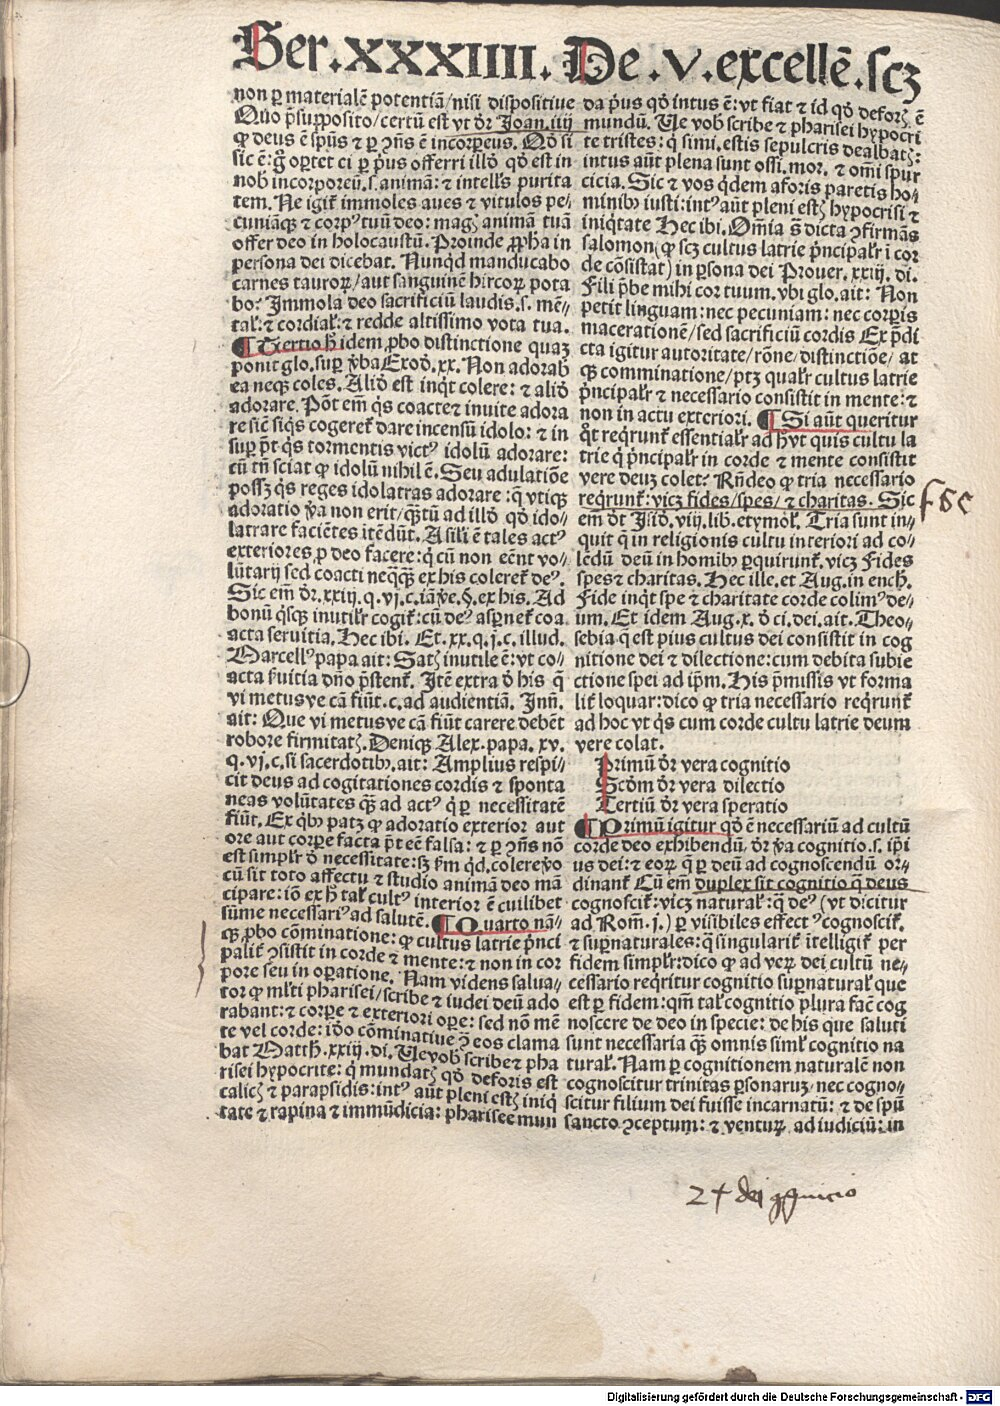 Ser .XXXIIII. De .v. excellē. scꝫ
non ꝑ materialē potentiā/nisi dispositiue
Quo p̄supposito/certū est vt dr̄ Joan. iiij
ꝙ deus ē spūs ⁊ ꝑ ꝯn̄s ē incorpeus. Qd̓ si
sic ē: g̊ oꝑtet ei ꝑ pr̄us offerri illd̓ qd̓ est in
nob̓ incorporeū. s. animā: ⁊ intellꝰ purita
tem. Ne igit̃ immoles aues ⁊ vitulos pe⸗
cuniāqꝫ ⁊ corpꝰ tuū deo: magꝭ animā tuā
offer deo in holocaustū. Proinde ꝓph̄a in
persona dei dicebat. Nunqd̓ manducabo
carnes tauroꝝ/aut sanguinē hircoꝝ pota
bo? Immola deo sacrificiū laudis. s. mē⸗
tal̓: ⁊ cordial̓: ⁊ redde altissimo vota tua.
¶ Tertio h̓ idem ꝓbo distinctione quaꝫ
ponit glo. suꝑ v̓ba Exod̓. xx. Non adorab̓
ea neqꝫ coles. Aliđ est inq̇t colere: ⁊ aliđ
adorare. Pōt em̄ q̇s coacte ⁊ inuite adora
re sic̄ siq̇s cogeret̃ dare incensū idolo: ⁊ in
suꝑ p̄t q̇s tormentis victꝰ idolū adorare:
cū tn̄ sciat ꝙ idolū nihil ē. Seu adulatiōe
possꝫ q̇s reges idolatras adorare: q̄ vtiqꝫ
adoratio v̓a non erit/qꝫtū ad illd̓ qd̓ ido⸗
latrare faciētes itēdūt. Asili ē tales actꝰ
exteriores ꝓ deo facere: q̇ cū non eēnt vo⸗
lūtarij sed coacti neqꝫqꝫ ex his coleret̃ deꝰ.
Sic em̄ dr̄. xxiij. q. vj. c. iāv̓e. §. ex his. Ad
bonū q̇sqꝫ inutilr̄ cogit̃: cū deꝰ asꝑnet̃ coa
acta seruitia. Hec ibi. Et. xx. q. j. c. illud.
Marcellꝰ papa ait: Satꝭ inutile ē: vt co⸗
acta ẜuitia dn̄o p̄stent̃. Itē extra d̓ his q̄
vi metusve cā fiūt. c. ad audientiā. Inn̄.
ait: Que vi metusve cā fiūt carere debēt
robore firmitatꝭ. Deniqꝫ Alex. papa. xv.
q. vj. c. si sacerdotibꝰ. ait: Amplius respi⸗
cit deus ad cogitationes cordis ⁊ sponta
neas volūtates qꝫ ad actꝰ q̇ ꝑ necessitatē
fiūt. Ex qb̓ꝰ patꝫ ꝙ adoratio exterior aut
ore aut corꝑe facta p̄t eē falsa: ⁊ ꝑ ꝯn̄s nō
est simplr̄ d̓ necessitate: sꝫ ẜm qd̓. colere v̓o
cū sit toto affectu ⁊ studio animā deo mā
cipare: iō ex h̓ tal̓ cultꝰ interior ē cuilibet
sūme necessariꝰ ad salutē. ¶ Quarto nā⸗
qꝫ ꝓbo cōminatione: ꝙ cultus latrie p̄nci
palit̃ ꝯsistit in corde ⁊ mente: ⁊ non in cor
pore seu in oꝑatione. Nam videns salua⸗
tor ꝙ ml̓ti pharisei/scribe ⁊ iudei deū ado
rabant: ⁊ corꝑe ⁊ exteriori oꝑe: sed nō mē
te vel corde: iđo cōminatiue ꝯ̄ eos clama
bat Matth̓. xxiij. di. Ue vob̓ scribe ⁊ pha
risei hypocrite: q̇ mundatꝭ qd̓ deforis est
calicꝭ ⁊ parapsidis: intꝰ aūt pleni estꝭ iniq̇
tate ⁊ rapina ⁊ immūdicia: pharisee mun
da pr̄us qd̓ intus ē: vt fiat ⁊ id qd̓ deforꝭ ē
mundū. Ue vob̓ scribe ⁊ pharisei hypocri
te tristes: q̇ simi. estis sepulcris dealbatꝭ:
intus aūt plena sunt ossi. mor. ⁊ om̄i spur
cicia. Sic ⁊ vos q̇dem aforis paretis ho⸗
minibꝰ iusti: intꝰ aūt pleni estꝭ hypocrisi ⁊
iniq̇tate Hec ibi. Om̄ia s̄ dicta ꝯfirmās
salomon (ꝙ scꝫ cultus latrie p̄ncipalr̄ ī cor
de cōsistat) in ꝑsona dei Prouer. xxiij. di.
Fili p̄be mihi cor tuum. vbi glo. ait: Non
petit linguam: nec pecuniam: nec corꝑis
macerationē/sed sacrificiū cordis Ex p̄di
cta igitur autoritate/rōne/distinctiōe/at
qꝫ comminatione/ptꝫ qualr̄ cultus latrie
p̄ncipalr̄ ⁊ necessario consistit in mente: ⁊
non in actu exteriori. ¶ Si aūt queritur
qt̓ req̇runt̃ essentialr̄ ad h̓ vt quis cultu la
trie q̇ p̄ncipalr̄ in corde ⁊ mente consistit
vere deuꝫ colet? Rn̄deo ꝙ tria necessario
req̇runt̃: vicꝫ fides/spes/⁊ charitas. Sic
em̄ dt̓ Isid̓. viij. lib. etymol̓. Tria sunt in⸗
quit q̄ in religionis cultu interiori ad co⸗
lēdū deū in homibꝰ ꝑquirunt̃. vicꝫ Fides
spes ⁊ charitas. Hec ille. et Aug. in ench̓.
Fide inq̇t spe ⁊ charitate corde colimꝰ de⸗
um. Et idem Aug. x. d̓ ci. dei. ait. Theo⸗
sebia q̄ est pius cultus dei consistit in cog
nitione dei ⁊ dilectione: cum debita subie
ctione spei ad ip̄m. His p̄missis vt forma
lit̃ loquar: dico ꝙ tria necessario req̇runt̃
ad hoc vt q̇s cum corde cultu latrie deum
vere colat.
Primū dr̄ vera cognitio
Scd̓m dr̄ vera dilectio
Tertiū dr̄ vera speratio
¶ Primū igitur qd̓ ē necessariū ad cultū
corde deo exhibendū. dr̄ v̓a cognitio. s. ip̄i
us dei: ⁊ eoꝝ q̄ ꝑ deū ad cognoscendū or⸗
dinant̃ Cū em̄ duplex sit cognitio q̄ deus
cognoscit̃: vicꝫ natural̓: q̄ deꝰ (vt dicitur
ad Rom̄. j.) ꝑ visibiles effectꝰ cognoscit̃.
⁊ suꝑnaturales: q̄ singularit̃ ītelligit̃ per
fidem simplr̄: dico ꝙ ad veꝝ dei cultū ne⸗
cessario req̇ritur cognitio suꝑnatural̓ que
est ꝑ fidem: qm̄ tal̓ cognitio plura fac̄ cog
noscere de deo in specie: de his que saluti
sunt necessaria qꝫ omnis siml̓ cognitio na
tural̓. Nam ꝑ cognitionem naturalē non
cognoscitur trinitas ꝑsonaruꝫ/nec cogno⸗
scitur filium dei fuisse incarnatū: ⁊ de spū
sancto ꝯceptum: ⁊ venturꝝ ad iudiciū: in
f s c
Digitalisierung gefördert durch die Deutsche Forschungsgemeinschaft - DFG